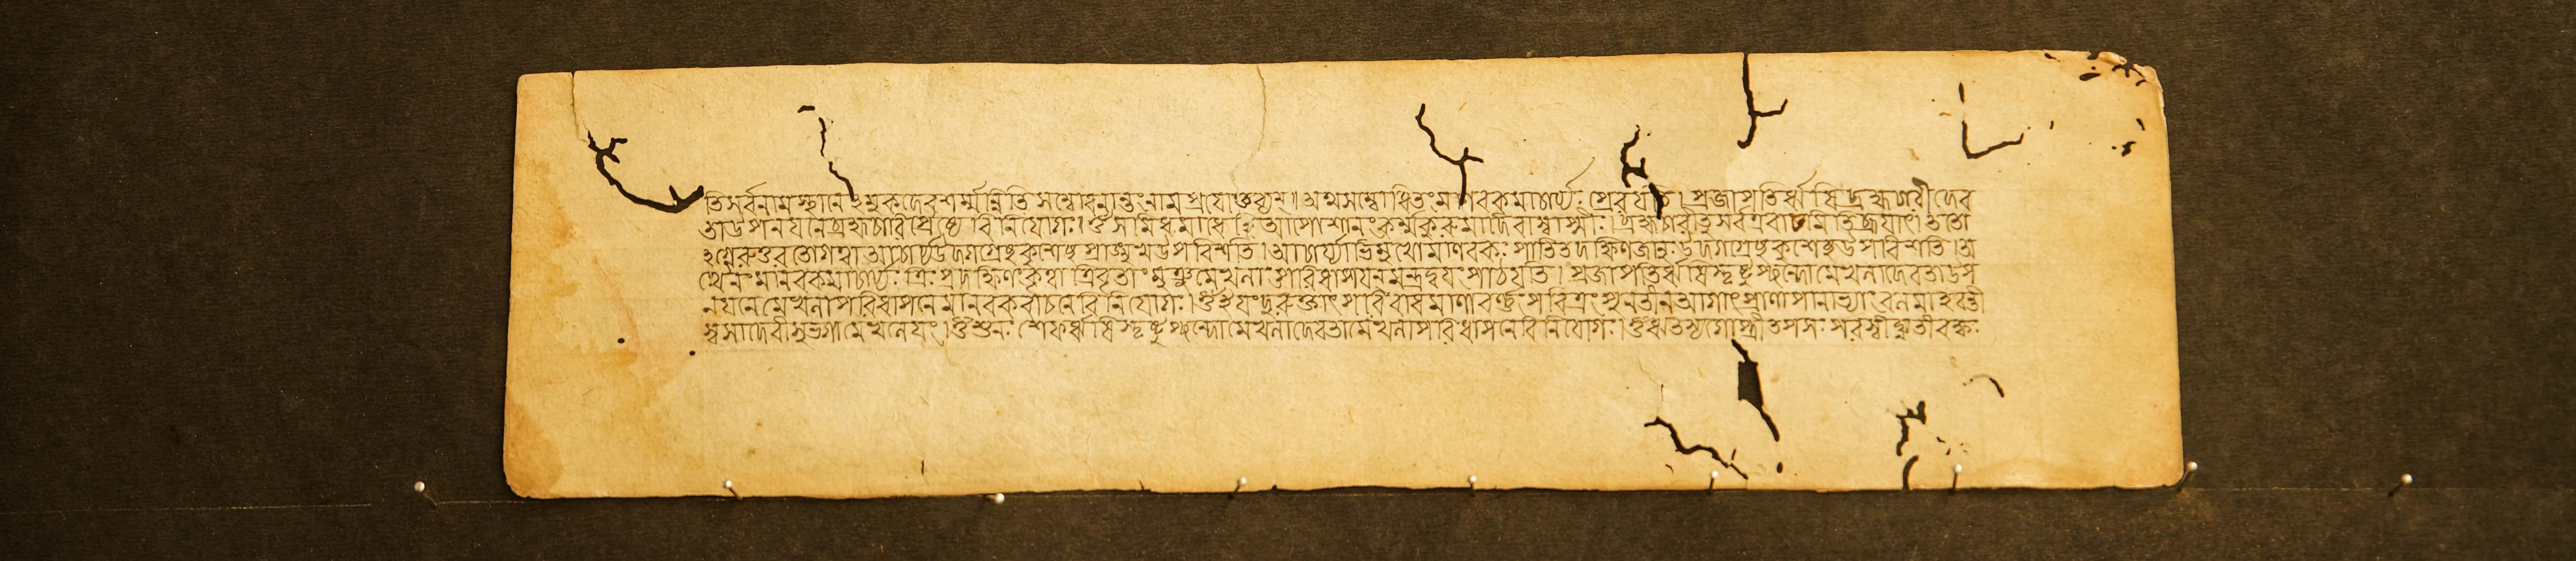 তিসর্ব্বনামস্থানেঽমুকদেবশর্ম্মন্নিতিসম্বোধনান্তং নামপ্রযোক্তব্যম্। অথসম্বোধিতং মাণবকমাচার্য্যঃ প্রেরযতি। প্রজাপতিরৃষি ব্রহ্মচারীদেব
তাউপনযনেব্রহ্মচারি প্রৈষে বিনিযোগঃ। ওঁ সমিধমাধেহি আপোশান কর্ম্মকুরু মাদিবাস্বাপ্সীঃ। ব্রহ্মচারীতু সর্বত্রবাঢমিতিব্রূযাৎ। ততো
ঽগ্নেরুত্তরতোগত্বা আচার্য্যউদগগ্রেষুকুশেষু প্রাঙ্মুখউপবিশতি। আচার্য্যাভিমুখোমাণবকঃ পাতিতদক্ষিণজানুঃ উদগগ্রেষুকুশেষুউপবিশতি। অ
থৈনং মানবকমাচার্য্যঃ ত্রিঃ প্রদক্ষিণং কৃত্বা ত্রিবৃতাং মুঞ্জমেখলাং পরিধাপযনমন্ত্রদ্বযং পাঠযতি। প্রজাপতিরৃষিস্তৃষ্টুপ্ছন্দোমেখলাদেবতাউপ
নযনেমেখলাপরিধাপনে মানবকবাচনেবিনিযোগঃ। ওঁ ইযং দুরুক্তাৎ পরিবাধমাণাবর্ণং পবিত্রং পুনতীনআগাৎ প্রাণাপানাভ্যাং বলমাহরন্তী
স্বসাদেবীসুভগামেখলেযং। ওঁ শুনঃ শেফরৃষিস্তৃষ্টুপ্ছন্দোমেখলাদেবতামেখলাপরিধাপনেবিনিযোগঃ। ওঁ ঋতস্যগোপ্ত্রীতপসঃ পরস্বীঘ্নতীরক্ষঃ